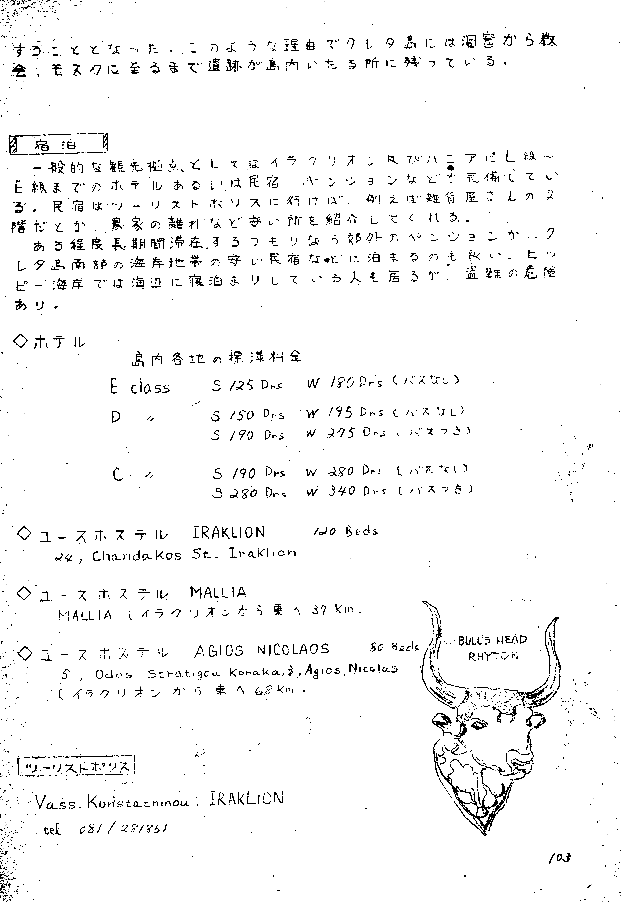 することとなった。このような理由でクレタ島には洞窟から教
会、モスクに至るまで遺跡が島内いたる所に残っている。
宿泊
一般的な観光拠点としてはイラクリオン及びハニアにL級〜
E級までのホテルあるいは民宿、ペンションなどが完備してい
る。民宿はツーリストポリスに行けば、例えば雑貨屋さんの2
階だとか、農家の離れなど安い所を紹介してくれる。
ある程度長期間滞在するつもりなら郊外のペンションか、ク
レタ島南部の海岸地帯の安い民宿などに泊まるのも良い。ヒッ
ピー海岸では海辺に寝泊まりしている人も居るが、盗難の危険
あり。
◇ホテル
島内各地の標準料金
E class S 125 Drs W 180 Drs (バスなし)
D 〃 S 150 Drs W 195 Drs (バスなし)
S 190 Drs W 275 Drs (バスつき)
C 〃 S 190 Drs W 280 Drs (バスなし)
S 280 Drs W 340 Drs (バスつき)
◇ユースホステル IRAKLION 120 Beds
24, Chandakos St. Iraklion
◇ユースホステル MALLIA
MALLIA (イラクリオンから東へ37 Km.
◇ユースホステル AGIOS NICOLAOS 80 Beds
5, Odos Stratigou Koraka, Agios, Nicolas
(イラクリオンから東へ68 Km.
BULL'S HEAD
RHYTON
ツーリストポリス
Vass. : IRAKLION
tel 081/281851
103